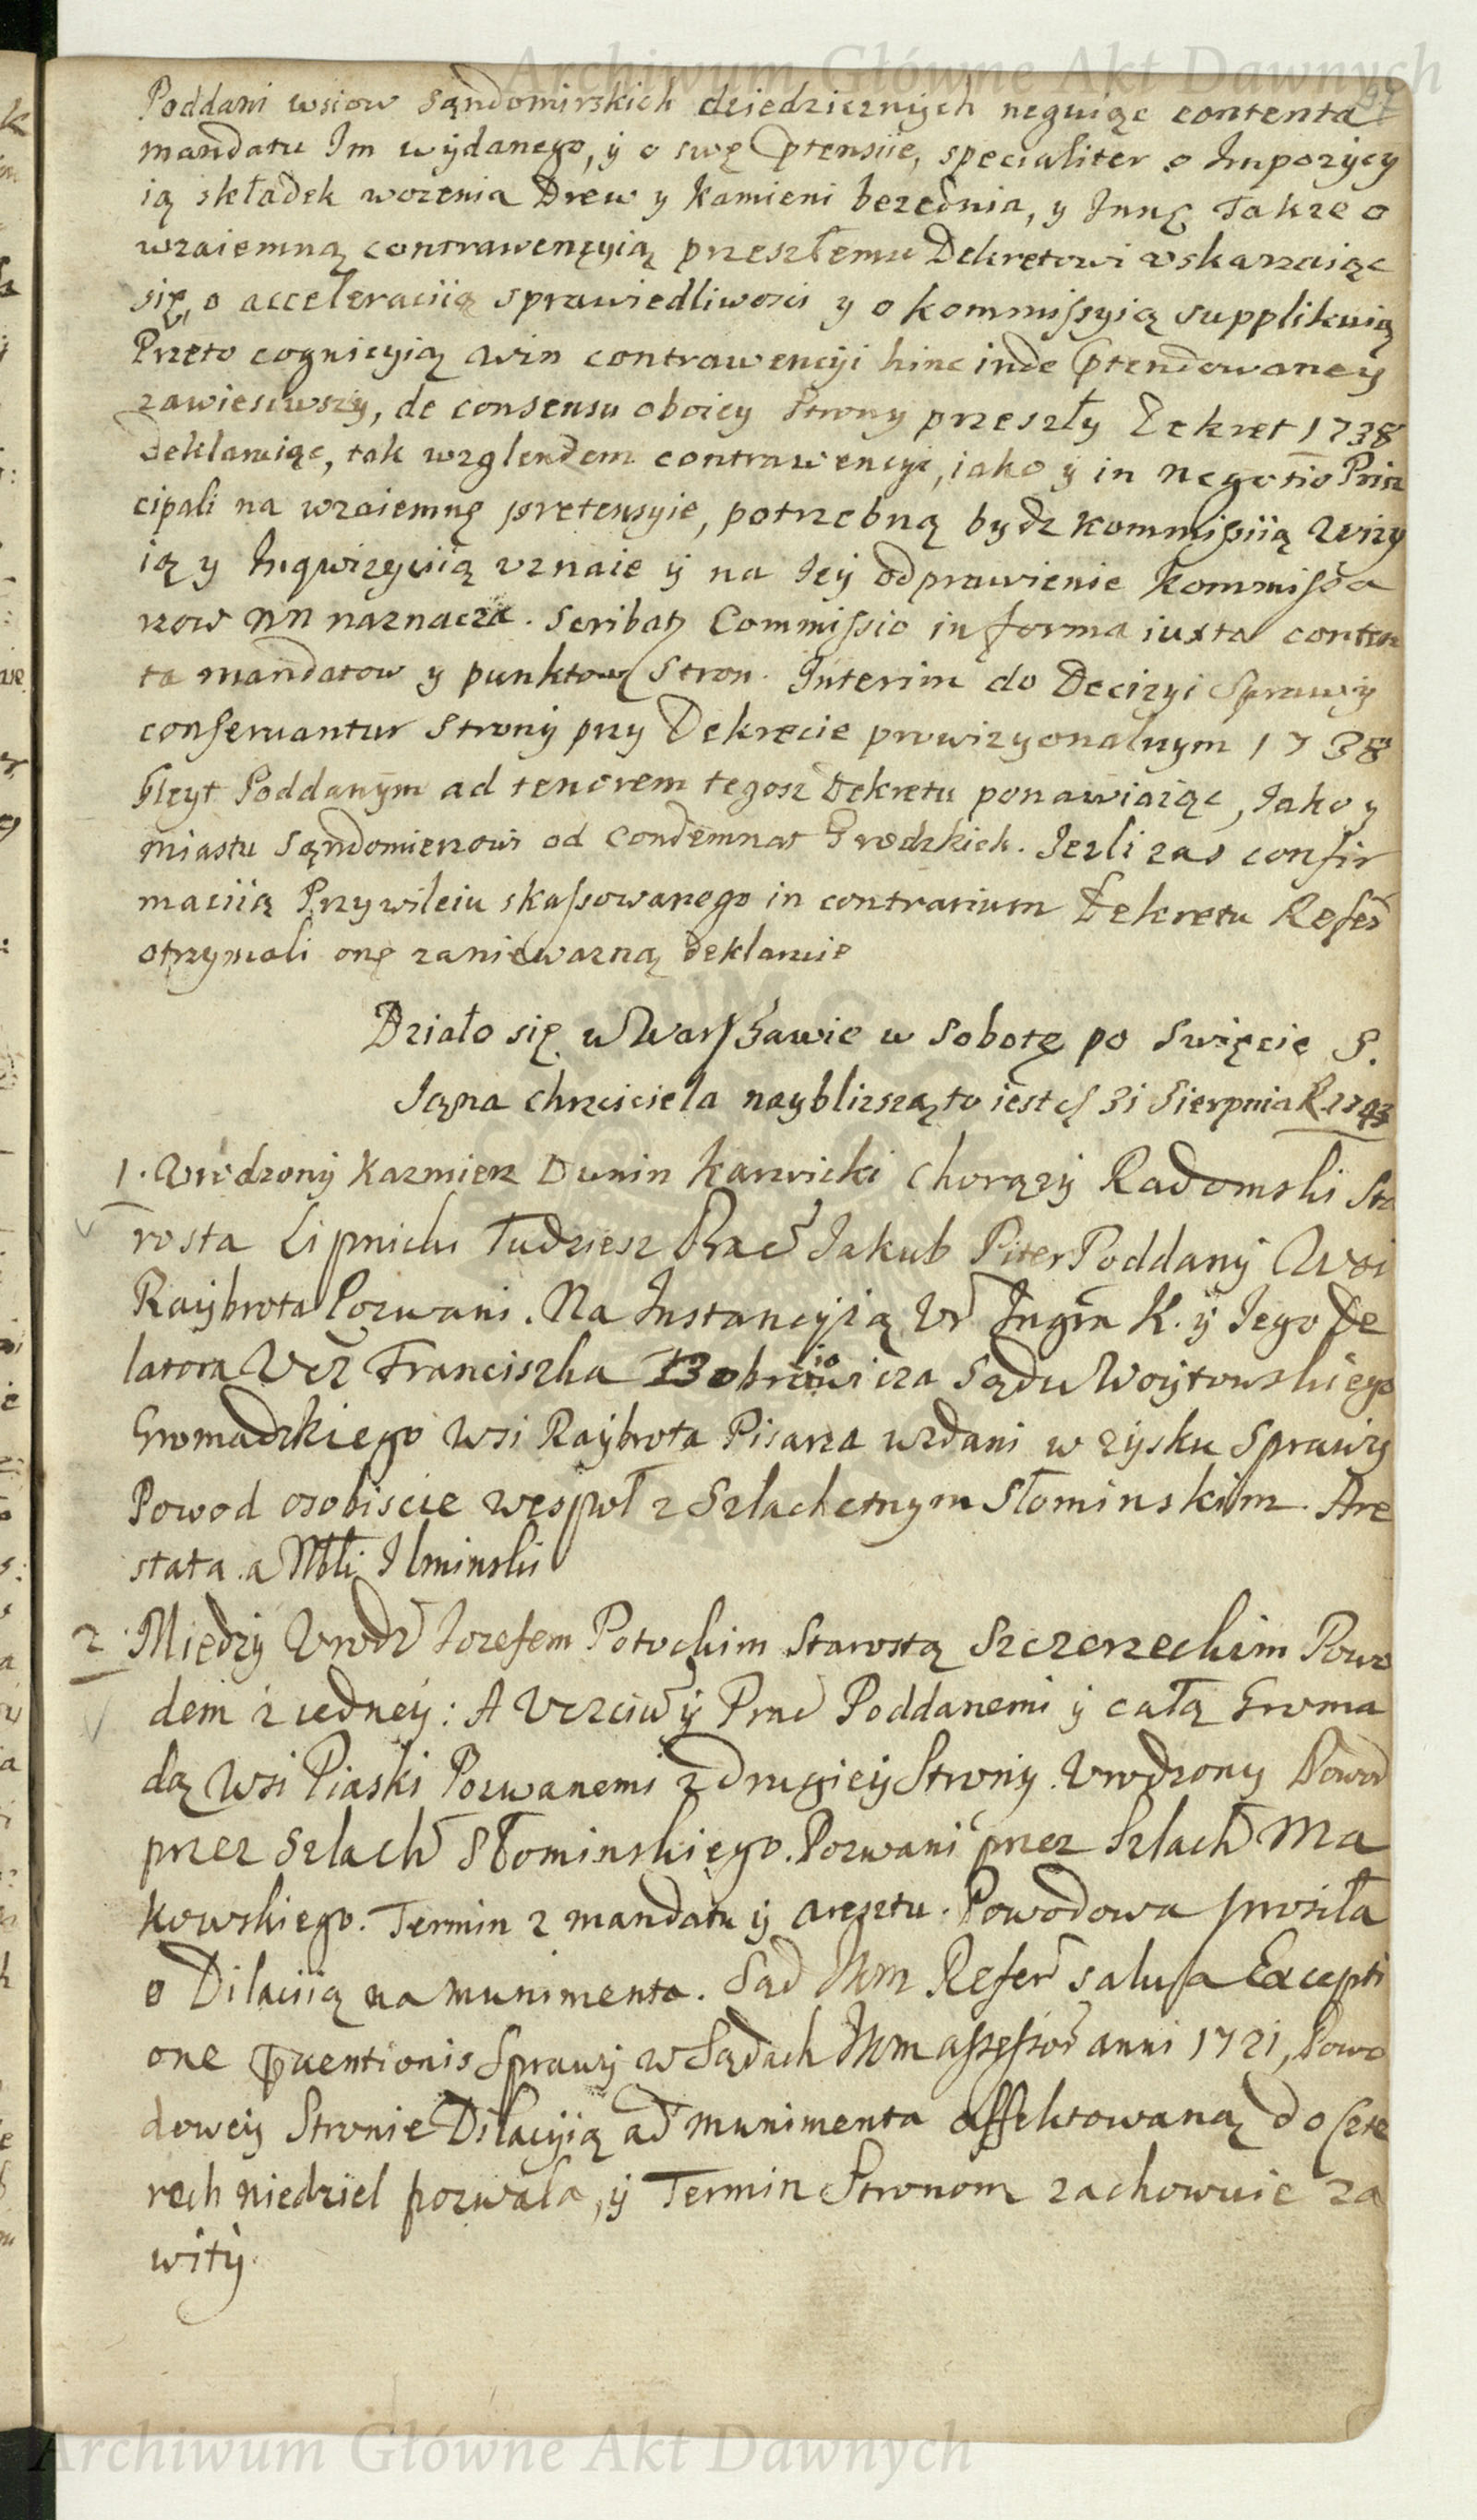 Archiwum Główne Akt Dawnych
Poddani wsiow Sąndomirskich dziedzicznych neguiąc contenta
mandatu Im wydanego, y o swę Ptensiie, specialiter o Impozycy
ią składek wozenia Drew y Kamieni bezednia, y Innę Takze o
wzaiemną contrawencyią przeszłemu Dekretowi vskarzaiąc
się, o acceleraciią sprawiedliwosci y o kommissyią supplikuią
Przeto cognicyią win contrawencyi hinc inde Ptendowaney
zawiesiwszy, de consensu oboiey Strony przeszły Dekret 1738
deklaruiąc, tak wzglendem contrawencyi, iako y in negotio Prin
cipali na wzaiemnę pretensyie, potrzebną bydz kommissiią Wizy
ią y Inqwizycyią vznaie y na Iey odprawienie Kommissa
rzow NN naznacza. Scribatz Commissio in forma iuxta conten
ta mandatow y punktow Stron. Interim do Decizyi Sprawy
conservantur Strony przy Dekrecie prowizyonalnym 1738
Gleyt Poddanym ad tenorem tegosz Dekretu ponawiaiąc, Iako y
miastu Sąndomierzowi od Condemnat Grodzkich. Iezli zas confir
maciią Przywileiu skassowanego in contrarium Dekretu Refer
otrzymali onę zaniewazną deklaruie
Działo się w Warszawie w Sobotę po Swięcie S.
Iąna chrzciciela naybliszszą to iest 31 Sierpnia R. 1743
1. Vrodzony Kazmierz Dunin Karwicki Chorązy Radomski Sta
rosta Lipnicki Tudziesz Prac Iakub Piter Poddany Wsi
Raybrota Pozwani. Na Instancyią Vr Ingra K. y Iego De
latora Vcz Franciszka Bobrowicza Sądu Woytowskiego
io
Gromadzkiego Wsi Raybrota Pisarza wzdani w zysku Sprawy
Powod osobiscie wespoł z Szlachetnym Słominskim. Are
stata a Mbli Ilminski
2. Między Vrodz Iozefem Potockim Starostą Szczerzeckim Powo
dem z iedney: A Vczciw y Prac Poddanemi y całą Groma
dą Wsi Piaski Pozwanemi z drugiey Strony. Vrodzony Powod
przez Szlach Słominskiego. Pozwani przez Szlach Ma
kowskiego. Termin z mandatu y aresztu. Powodowa prosiła
o Dilaciią na munimenta. Sąd Nwm Refer salusa Excepti
one Pventionis Sprawy w Sądach Nwm assessor anni 1721, Powo
dowey Stronie Dilacyią ad munimenta affektowaną do czte
rech niedziel pozwala, y Termin Stronom zachowuie za
wity.
Archiwum Główne Akt Dawnych